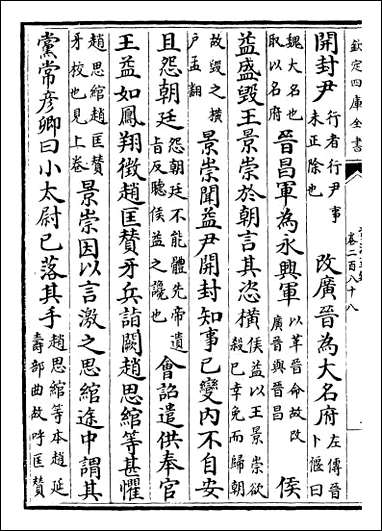 欽定四庫全書
卷二百八十八
開封尹行者行尹事未正除也改廣晉為大名府左傳晉卜偃曰
魏大名也取以名府晉昌軍為永興軍以革晉命故改廣晉與晉昌侯
益盛毀王景崇於朝言其恣橫侯益以王景崇欲殺已幸免而歸朝
故毀之橫戶孟翻景崇聞益尹開封知事已變内不自安
且怨朝廷怨朝廷不能體先帝遺旨反聽侯益之讒也會詔遣供奉官
王益如鳳翔徵趙匡贊牙兵詣闕趙思綰等甚懼
趙思綰趙匡贊牙校也見上卷景崇因以言激之思綰途中謂其
黨常彥卿曰小太尉已落其手趙思綰等本趙延壽部曲故呼匡贊